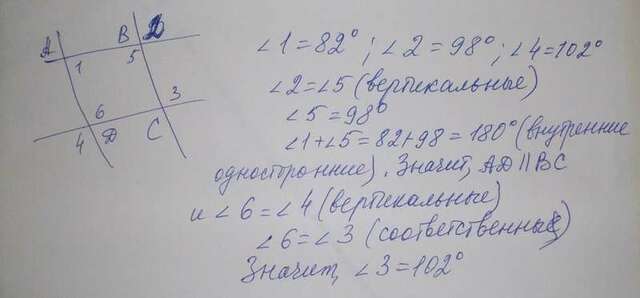 A B 2
1 5
6 3
4 D C
∠1=82°; ∠2=98°; ∠4=102°
∠2=∠5 (вертикальные)
∠5=98°
∠1+∠5=82+98=180° (внутренние
односторонние). Значит, AD || BC
и ∠6=∠4 (вертикальные)
∠6=∠3 (соответственные)
Значит, ∠3=102°